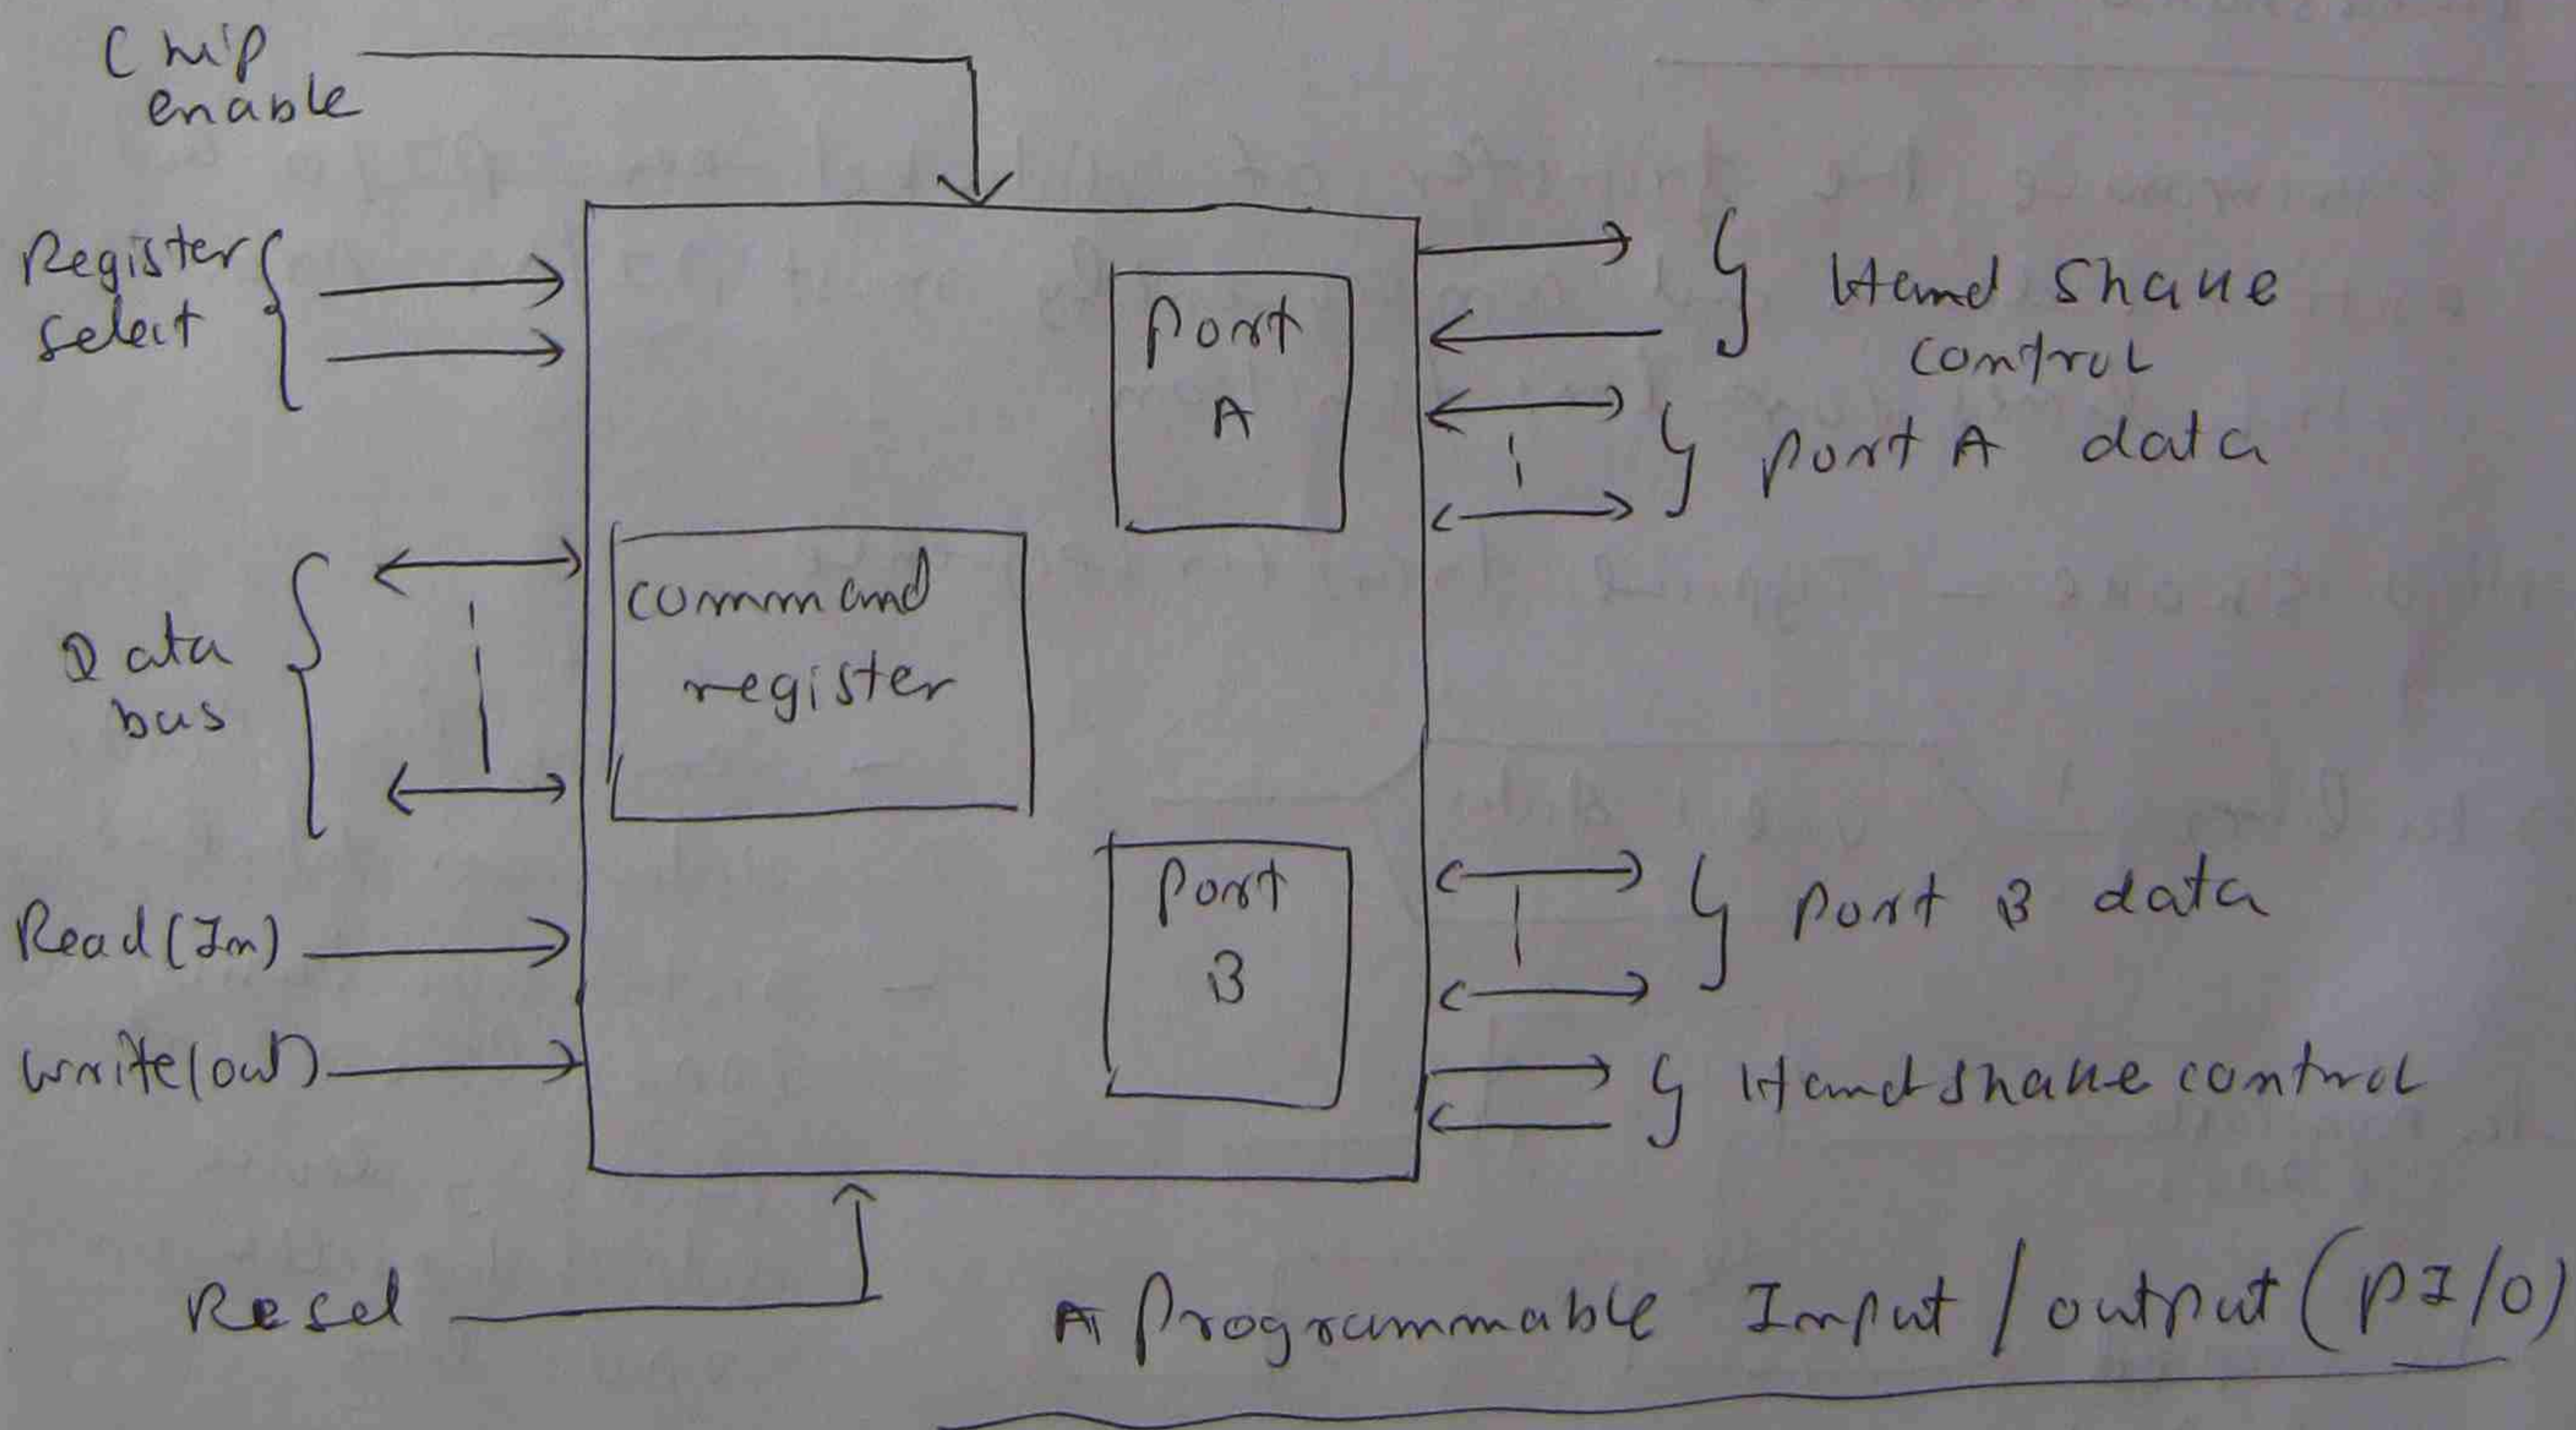 Chip
enable
Register
select
Data
bus
Read (In)
write (out)
Reset
Port
A
command
register
Port
B
Hand Shake
control
port A data
port B data
Handshake control
A Programmable Input / output (PI/O)